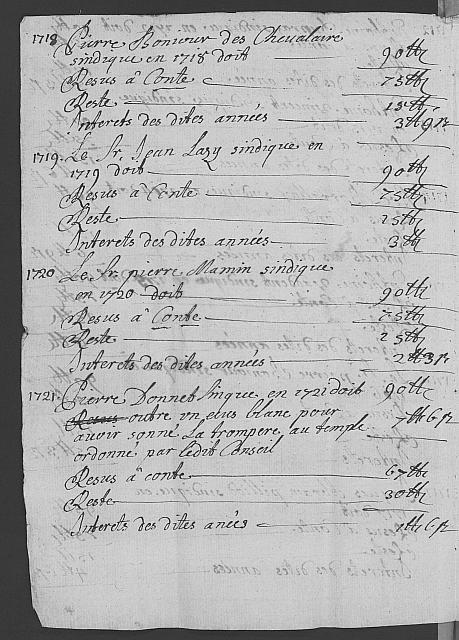 1718 Pierre Bonjour des Chevalaire
sindique en 1718 doit 90 ₶
Resus à Conte 75 ₶
Reste 15 ₶
Interets des dites années 3 ₶ 9 ß
1719. Le Sr. Jean Lazy sindique en
1719 doit 90 ₶
Resus à Conte 75 ₶
Reste 15 ₶
Interets des dites années 3 ₶
1720 Le Sr. pierre Mamin sindique
en 1720 doit 90 ₶
Resus à Conte 75 ₶
Reste 15 ₶
Interets des dites années 2 ₶ 3 ß
1721. Pierre Donnet sinque, en 1721 doit 90 ₶
Resus outre un ecus blanc pour
avoir sonné La trompere, au temple 7 ₶ 6 ß
ordonné par ledit Conseil
Resus à conte 67 ₶
Reste 30 ₶
Interets des dites anées 1 ₶ 6 ß